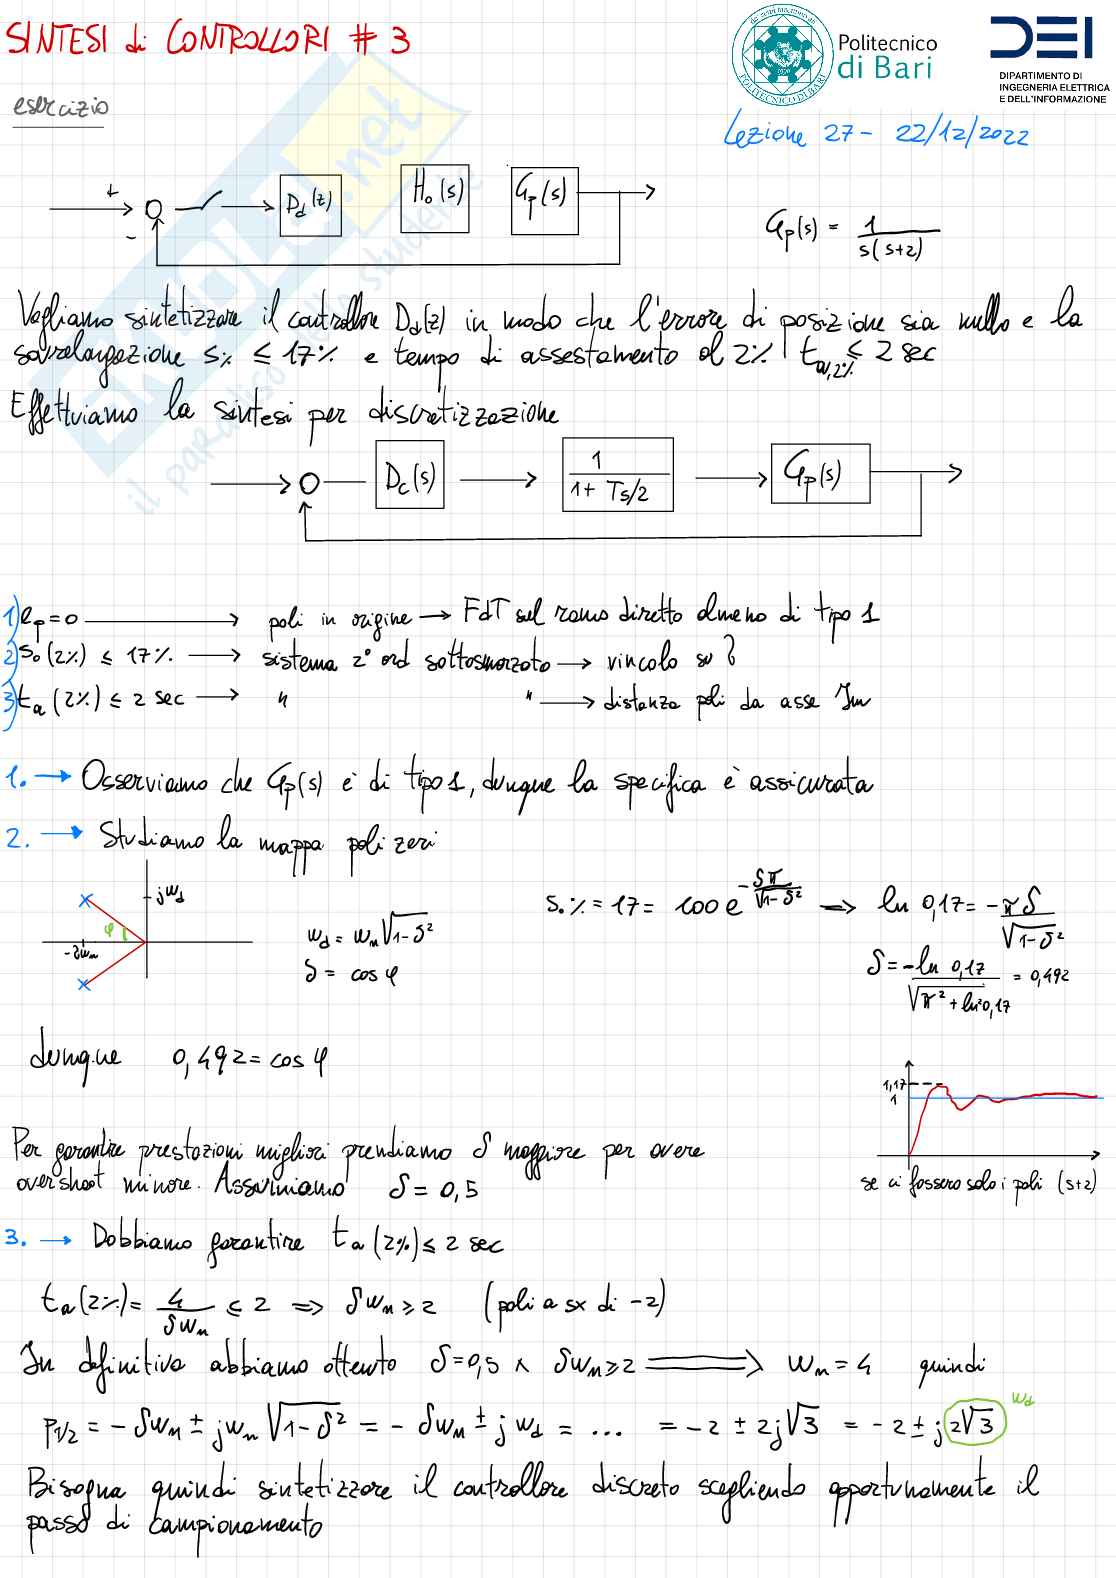 SINTESI di CONTROLLORI # 3
Politecnico
di Bari
DEI
DIPARTIMENTO DI
INGEGNERIA ELETTRICA
E DELL'INFORMAZIONE
esercizio
Lezione 27 - 22/12/2022
+
-
Dd(z)
H0(s)
Gp(s)
Gp(s) = 1 / s(s+2)
Vogliamo sintetizzare il controllore Dd(z) in modo che l'errore di posizione sia nullo e la
sovraelongazione s% ≤ 17% e tempo di assestamento al 2% ta,2% ≤ 2 sec
Effettuiamo la sintesi per discretizzazione
Dc(s)
1 / 1 + Ts/2
Gp(s)
1) ep = 0 → poli in origine → FdT sul ramo diretto almeno di tipo 1
2) so (2%) ≤ 17% → sistema 2° ord sottosmorzato → vincolo su δ
3) ta (2%) ≤ 2 sec → " " → distanza poli da asse Im
1. → Osserviamo che Gp(s) è di tipo 1, dunque la specifica è assicurata
2. → Studiamo la mappa poli zeri
jωd
φ
-δωn
ωd = ωn√1-δ²
δ = cos φ
s.% = 17 = 100 e^(-δπ/√1-δ²) ⇒ ln 0,17 = -πδ / √1-δ²
δ = -ln 0,17 / √π² + ln² 0,17 = 0,492
dunque 0,492 = cos φ
1,17
1
Per garantire prestazioni migliori prendiamo δ maggiore per avere
overshoot minore. Assumiamo δ = 0,5
se ci fossero solo i poli (s+2)
3. → Dobbiamo garantire ta (2%) ≤ 2 sec
ta (2%) = 4 / δωn ≤ 2 ⇒ δωn ≥ 2 (poli a sx di -2)
In definitiva abbiamo ottenuto δ = 0,5 ∧ δωn ≥ 2 ⇒ ωn = 4 quindi
p1/2 = - δωn ± jωn √1-δ² = - δωn ± jωd = ... = -2 ± 2j√3 = -2 ± j 2√3 ωd
Bisogna quindi sintetizzare il controllore discreto scegliendo opportunamente il
passo di campionamento